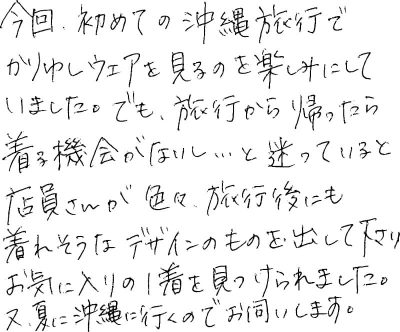 今回、初めての沖縄旅行で
かりゆしウェアを見るのを楽しみにして
いました。でも、旅行から帰ったら
着る機会がないし…と迷っていると
店員さんが色々、旅行後にも
着れそうなデザインのものを出して下さり
お気に入りの1着を見つけられました。
又、夏に沖縄に行くのでお伺いします。